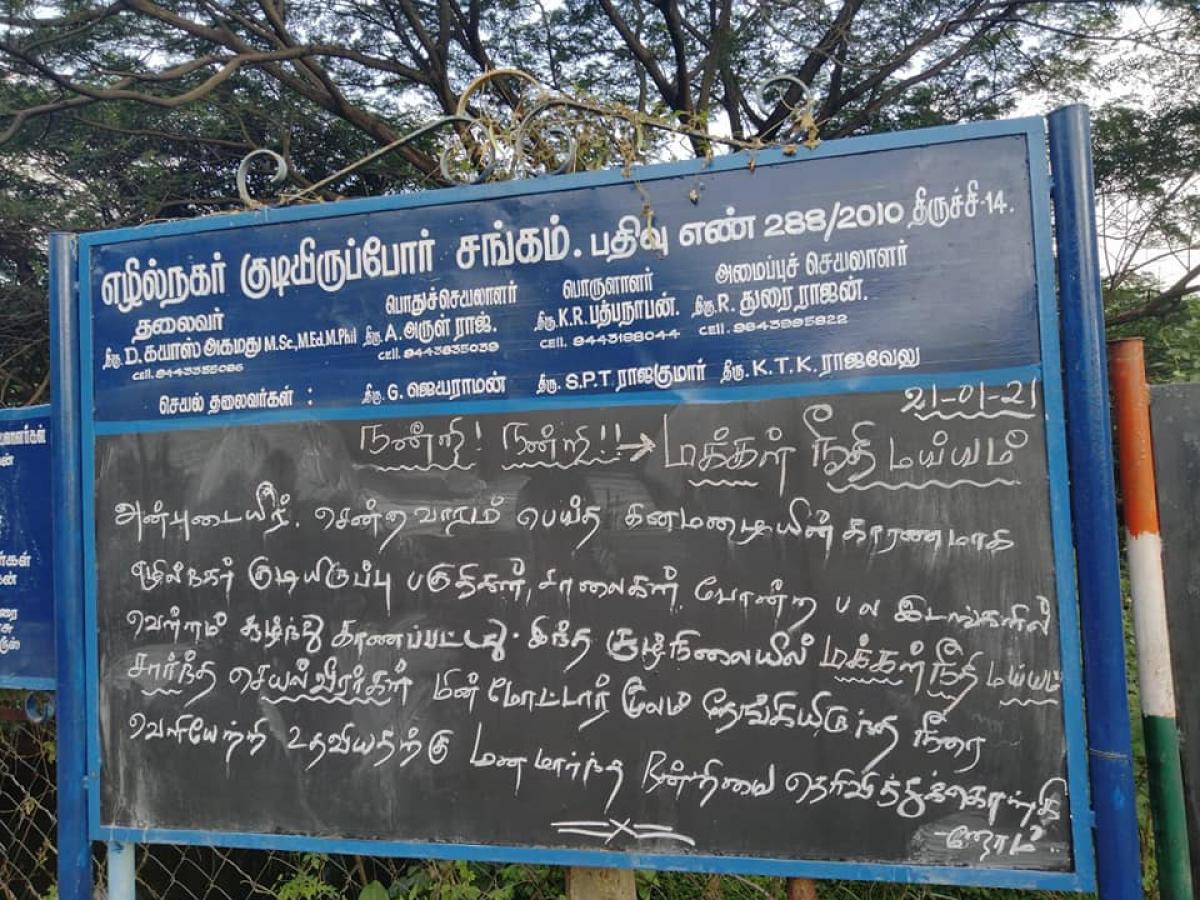 எழில்நகர் குடியிருப்போர் சங்கம். பதிவு எண் 288/2010 திருச்சி-14.
தலைவர் பொதுச்செயலாளர் பொருளாளர் அமைப்புச் செயலாளர்
திரு. D. கயாஸ் அகமது M.Sc.,M.Ed.M.Phil திரு. A. அருள் ராஜ். திரு. K.R. பத்பநாபன். திரு. R. துரை ராஜன்.
Cell. 9443355086 Cell. 9443835039 Cell. 9443188044 Cell. 9843995822
செயல் தலைவர்கள் : திரு. G. ஜெயராமன் திரு. S.P.T ராஜகுமார் திரு. K.T.K. ராஜவேலு
21-01-21
நன்றி! நன்றி!! → மக்கள் நீதி மய்யம்
அன்புடையீர். சென்ற வாரம் பெய்த கனமழையின் காரணமாக
எழில்நகர் குடியிருப்பு பகுதிகள், சாலைகள் போன்ற பல இடங்களில்
வெள்ளம் சூழ்ந்து காணப்பட்டது. இந்த சூழ்நிலையில் மக்கள் நீதி மய்யம்
சார்ந்த செயல்வீரர்கள் மின் மோட்டார் மூலம் தேங்கியிருந்த நீரை
வெளியேற்றி உதவியதற்கு மனமார்ந்த நன்றியை தெரிவித்துக்கொள்கி
-றோம்.